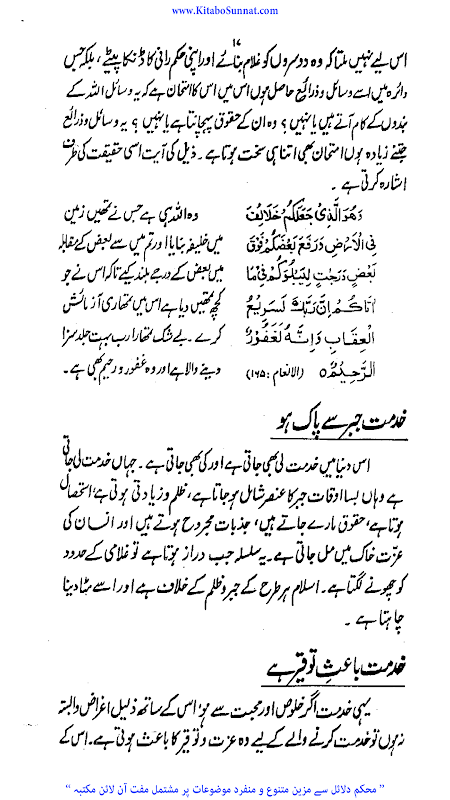 www.KitaboSunnat.com
۱۷
اس لیے نہیں ملتا کہ وہ دوسروں کو غلام بنائے اور اپنی حکم رانی کا ڈنکا پیٹے، بلکہ جس
دائرہ میں اسے وسائل و ذرائع حاصل ہوں اس میں اس کا امتحان ہے کہ یہ وسائل اللہ کے
بندوں کے کام آتے ہیں یا نہیں؟ وہ ان کے حقوق پہچانتا ہے یا نہیں؟ یہ وسائل و ذرائع
جتنے زیادہ ہوں امتحان بھی اتنا ہی سخت ہوتا ہے۔ ذیل کی آیت اسی حقیقت کی طرف
اشارہ کرتی ہے۔
وَهُوَ الَّذِيْ جَعَلَكُمْ خَلَائِفَ وہ اللہ ہی ہے جس نے تمھیں زمین
فِي الْاَرْضِ وَرَفَعَ بَعْضَكُمْ فَوْقَ میں خلیفہ بنایا اور تم میں سے بعض کے مقابلہ
بَعْضٍ دَرَجٰتٍ لِّيَبْلُوَكُمْ فِيْ مَا میں بعض کے درجے بلند کیے تاکہ اس نے جو
اٰتَاكُمْ اِنَّ رَبَّكَ لَسَرِيْعُ کچھ تمھیں دیا ہے اس میں تمھاری آزمائش
الْعِقَابِ وَاِنَّهٗ لَغَفُوْرٌ کرے۔ بے شک تمھارا رب بہت جلد سزا
الرَّحِيْمُ (الانعام: ۱۶۵) دینے والا ہے اور وہ غفور و رحیم بھی ہے۔
خدمت جبر سے پاک ہو
اس دنیا میں خدمت لی بھی جاتی ہے اور کی بھی جاتی ہے۔ جہاں خدمت لی جاتی
ہے وہاں بسا اوقات جبر کا عنصر شامل ہو جاتا ہے، ظلم و زیادتی ہوتی ہے، استحصال
ہوتا ہے، حقوق مارے جاتے ہیں، جذبات مجروح ہوتے ہیں اور انسان کی
عزت خاک میں مل جاتی ہے۔ یہ سلسلہ جب دراز ہوتا ہے تو غلامی کے حدود
کو چھونے لگتا ہے۔ اسلام ہر طرح کے جبر و ظلم کے خلاف ہے اور اسے مٹا دینا
چاہتا ہے۔
خدمت باعثِ توقیر ہے
یہی خدمت اگر خلوص اور محبت سے ہو، اس کے ساتھ ذلیل اغراض وابستہ
نہ ہوں تو خدمت کرنے والے کے لیے وہ عزت و توقیر کا باعث ہوتی ہے۔ اس کے
" محکم دلائل سے مزین متنوع و منفرد موضوعات پر مشتمل مفت آن لائن مکتبہ "